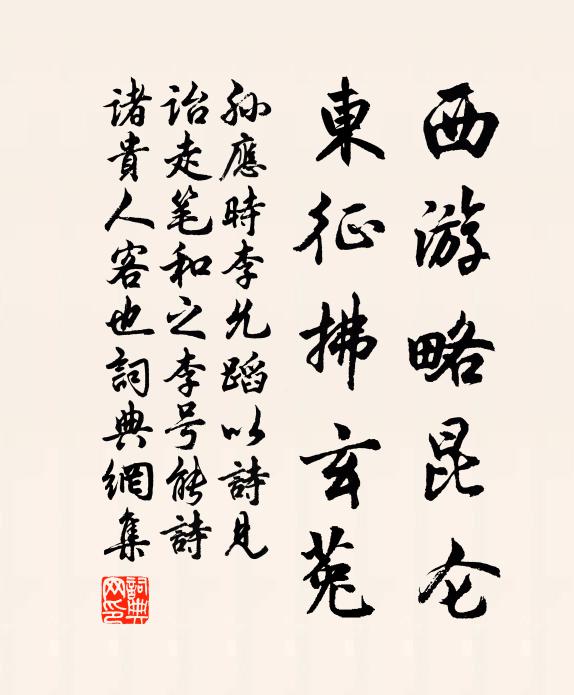 西游略昆仑
東征拂玄菟
孙應時李允蹈以詩見
诒走笔和之李号能詩
诸貴人客也詞典網集
詞典
网印